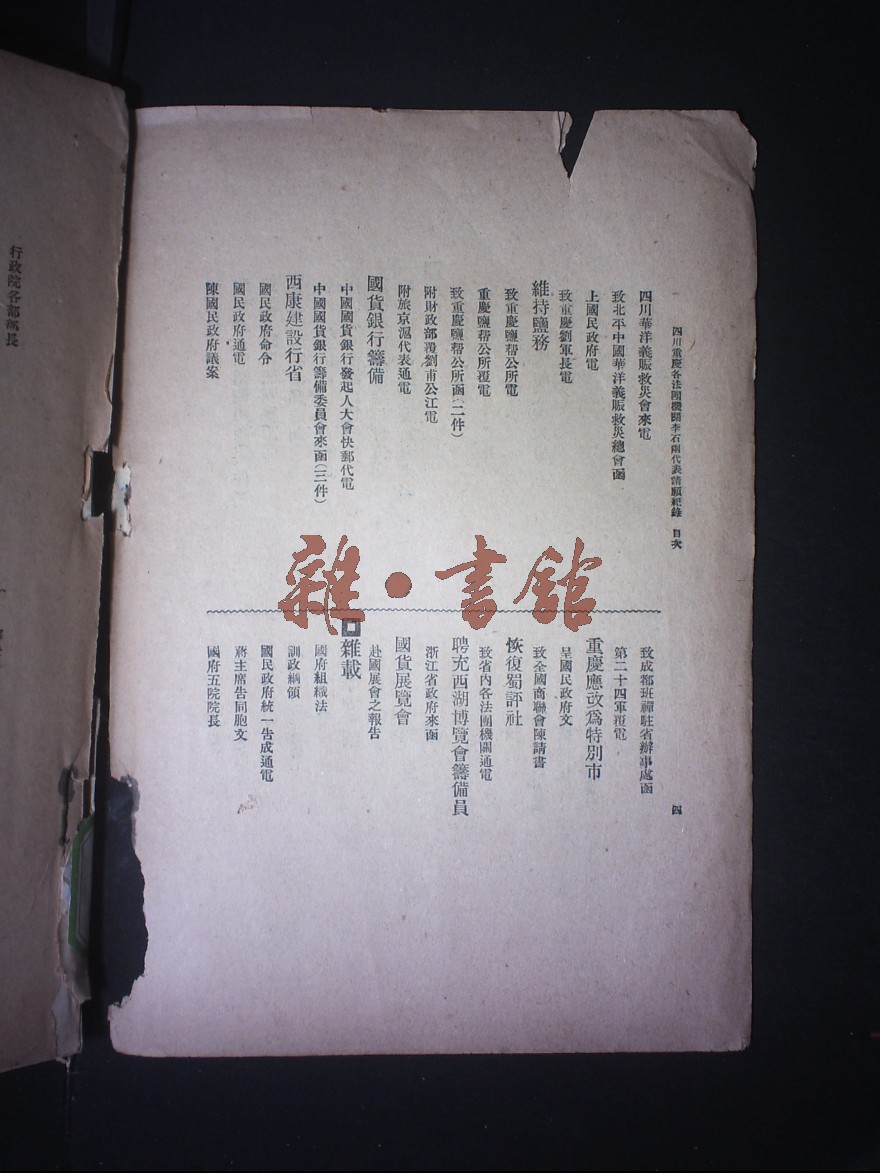 四川重慶各法團機關李石兩代表請願紀錄 目次
四
四川華洋義賑救災會來電
致北平中國華洋義賑救災總會函
上國民政府電
致重慶劉軍長電
維持鹽務
致重慶鹽幫公所電
重慶鹽幫公所覆電
致重慶鹽幫公所函(二件)
附財政部覆劉甫公江電
附旅京滬代表通電
國貨銀行籌備
中國國貨銀行發起人大會快郵代電
中國國貨銀行籌備委員會來函(三件)
西康建設行省
國民政府命令
國民政府通電
陳國民政府議案
致成都班禪駐省辦事處函
第二十四軍覆電
重慶應改爲特別市
呈國民政府文
致全國商聯會陳請書
恢復蜀評社
致省內各法團機關通電
聘充西湖博覽會籌備員
浙江省政府來函
國貨展覽會
赴國展會之報告
雜載
國府組織法
訓政綱領
國民政府統一告成通電
蔣主席告同胞文
國府五院院長
行政院各部部長
雜·書館